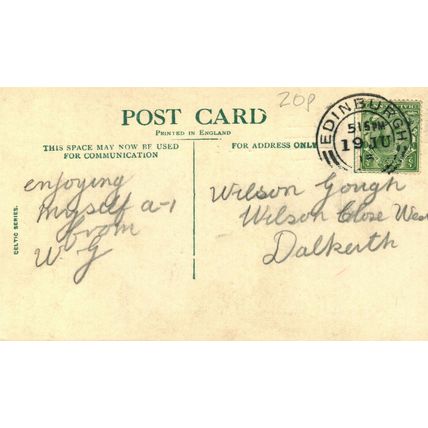 20p
POST CARD
PRINTED IN ENGLAND
THIS SPACE MAY NOW BE USED
FOR COMMUNICATION
FOR ADDRESS ONLY
EDINBURGH
5 15 PM
19 JU
CELTIC SERIES.
enjoying
myself a-1
from
W G
Wilson Gough
Wilson Close West
Dalkerth